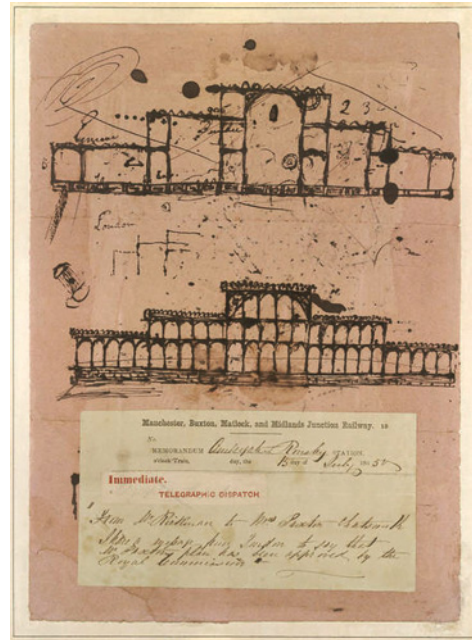 2 3
London
Manchester, Buxton, Matlock, and Midlands Junction Railway.
No.
MEMORANDUM Ambergate & Rowsley STATION.
o'clock Train, day, the 15 day of July 1850
Immediate.
TELEGRAPHIC DISPATCH
From Mr to Mrs Paxton Chatsworth
message from London to say that
Mr Paxton's plan has been approved by the
Royal Commission